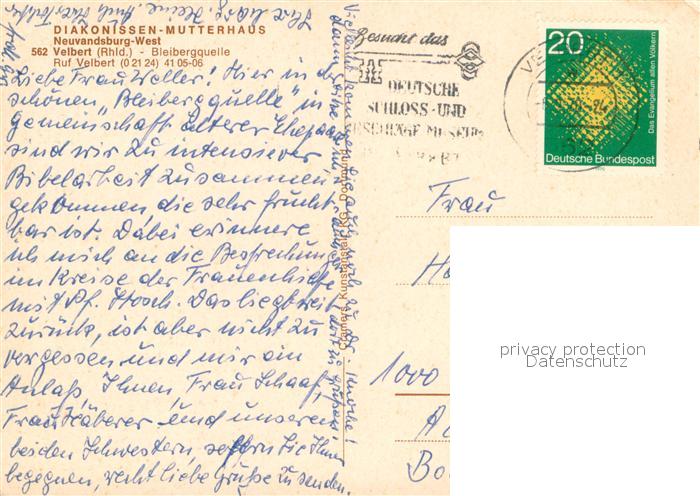 DIAKONISSEN-MUTTERHAUS
Neuvandsburg-West
562 Velbert (Rhld.) - Bleibergquelle
Ruf Velbert (0 21 24) 41 05-06
Liebe Frau Weller! Hier in der
schönen „Bleibergquelle" in
Gemeinschaft älterer Ehepaare
sind wir zu intensiver
Bibelarbeit zusammen
gekommen, die sehr frucht
bar ist. Dabei erinnere
ich mich an die Besprechung
im Kreise der Frauenhilfe
mit Pf. Hosch. Das liegt weit
zurück, ist aber nicht zu
vergessen und mir ein
Anlaß, Ihnen, Frau Schaaf,
Frau Häberer und unseren
beiden Schwestern, sofern Sie Ihnen
begegnen, recht liebe Grüße zu senden.
Cramers Kunstanstalt KG, Dortmund
Besucht das
DEUTSCHE
SCHLOSS- UND
BESCHLÄGE MUSEUM
20
Das Evangelium allen Völkern
Deutsche Bundespost
Frau
1000
privacy protection
Datenschutz